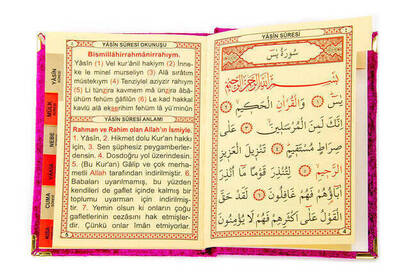 YÂSÎN SÛRESİ OKUNUŞU
Bismillâhirrahmânirrahıym.
Yâsîn (1) Vel kur'ânil hakiym (2) İnne-
ke le minel murseliyn (3) Alâ sırâtım
müstekıym (4) Tenziylel aziyzirrahıym
(5) Li tünzira kavmem mâ ünzira âbâ-
ühüm fehüm gâfilûn (6) Le kad hakkal
kavlü alâ ekserihim fehüm lâ yü'minûn
YÂSÎN SÛRESİ ANLAMI
Rahman ve Rahim olan Allah'ın İsmiyle.
1. Yâsîn, 2. Hikmet dolu Kur'an hakkı
için, 3. Sen şüphesiz peygamberler-
densin. 4. Dosdoğru yol üzerindesin.
5. (Bu Kur'an) Gâlip ve çok merha-
metli Allah tarafından indirilmiştir. 6.
Babaları uyarılmamış, bu yüzden
kendileri de gaflet içinde kalmış bir
toplumu uyarman için indirilmiş-
tir. 7. Yemin olsun ki onların çoğu
gafletlerinin cezasını hak etmişler-
dir. Çünkü onlar İman etmiyorlar.
YÂSİN
MÜLK
NEBE
VAKIA
CUMA
KISA
YÂSÎN SÛRESİ
سُورَةُ يٰسٓ
بِسْمِ اللّٰهِ الرَّحْمٰنِ الرَّحِيمِ
يٰسٓ ﴿١﴾ وَالْقُرْاٰنِ الْحَكِيمِ ﴿٢﴾
اِنَّكَ لَمِنَ الْمُرْسَلِينَ ﴿٣﴾ عَلٰى
صِرَاطٍ مُسْتَقِيمٍ ﴿٤﴾ تَنْزِيلَ الْعَزِيزِ
الرَّحِيمِ ﴿٥﴾ لِتُنْذِرَ قَوْمًا مَا اُنْذِرَ
اٰبَاؤُهُمْ فَهُمْ غَافِلُونَ ﴿٦﴾ لَقَدْ حَقَّ
الْقَوْلُ عَلٰى اَكْثَرِهِمْ فَهُمْ لَا يُؤْمِنُونَ